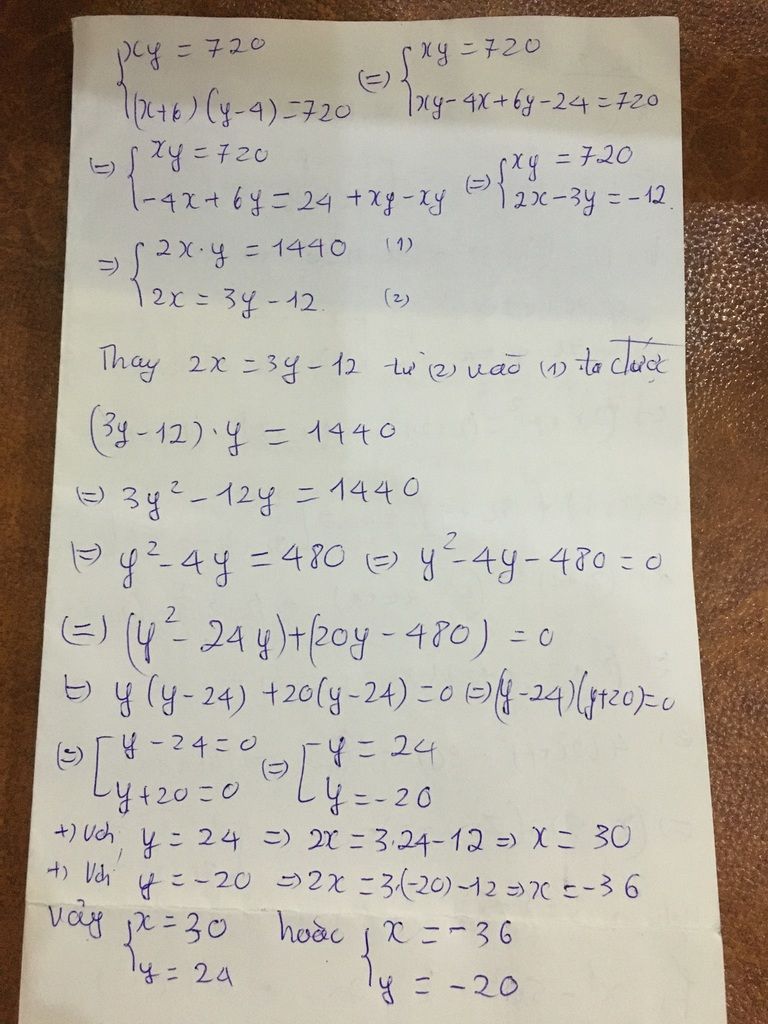 { xy = 720 (=) { xy = 720
(x+6)(y-4) = 720 xy - 4x + 6y - 24 = 720
(=) { xy = 720 (=) { xy = 720
-4x + 6y = 24 + xy - xy 2x - 3y = -12.
=) { 2x.y = 1440 (1)
2x = 3y - 12. (2)
Thay 2x = 3y - 12 từ (2) vào (1) ta được
(3y - 12).y = 1440
(=) 3y² - 12y = 1440
(=) y² - 4y = 480 (=) y² - 4y - 480 = 0
(=) (y² - 24y) + (20y - 480) = 0
(=) y(y - 24) + 20(y - 24) = 0 (=) (y - 24)(y + 20) = 0
(=) [ y - 24 = 0 (=) [ y = 24
y + 20 = 0 y = -20
+) Với y = 24 => 2x = 3.24 - 12 => x = 30
+) Với y = -20 => 2x = 3.(-20) - 12 => x = -36
Vậy { x = 30 hoặc { x = -36
y = 24 y = -20